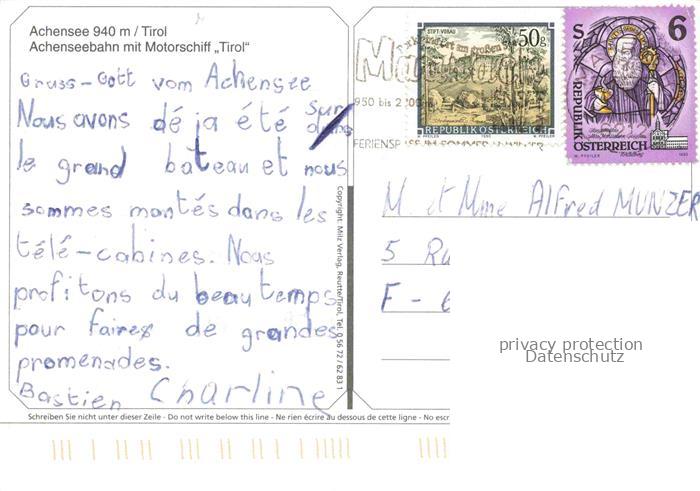 Achensee 940 m / Tirol
Achenseebahn mit Motorschiff „Tirol“
Gruss-Gott vom Achensee
Nous avons déja été sur
le grand bateau et nous
sommes montés dans les
télé-cabines. Nous
profitons du beau temps
pour faires de grandes
promenades.
Bastien Charline
Schreiben Sie nicht unter dieser Zeile - Do not write below this line - Ne rien écrire au dessous de cette ligne - No escr
Copyright: Milz Verlag, Reutte/Tirol, Tel. 0 56 72 / 62 83 1
STIFT · VORAU
50g
REPUBLIK ÖSTERREICH
W. PFEILER 1990
950 bis 2
S 6
REPUBLIK
ÖSTERREICH
W. PFEILER
M. et Mme Alfred MUNZER
5 Ru
F - 6
privacy protection
Datenschutz